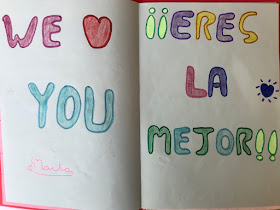 WE ❤ YOU
Marta
¡¡ERES
LA
MEJOR!!